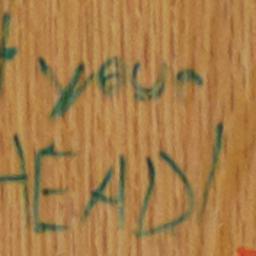 your
HEAD!